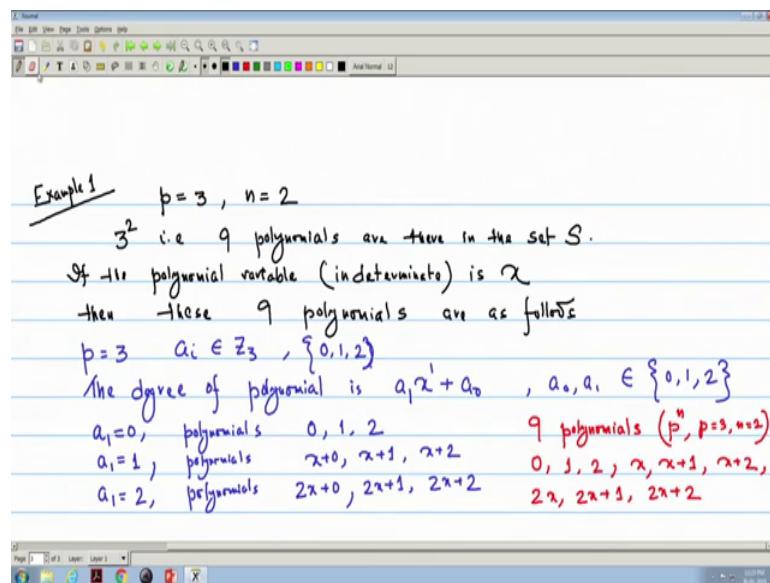 File Edit View Page Tools Options Help
Arial Normal 12
Example 1
p = 3 , n = 2
3² i.e 9 polynomials are there in the set S.
If the polynomial variable (indeterminate) is x
then these 9 polynomials are as follows
p = 3 aᵢ ∈ Z₃ , {0,1,2}
The degree of polynomial is a₁x¹ + a₀ , a₀, a₁ ∈ {0,1,2}
a₁=0, polynomials 0, 1, 2
a₁=1, polynomials x+0, x+1, x+2
a₁=2, polynomials 2x+0, 2x+1, 2x+2
9 polynomials (pⁿ, p=3, n=2)
0, 1, 2, x, x+1, x+2,
2x, 2x+1, 2x+2
Page 3 of 3 Layer: Layer 1